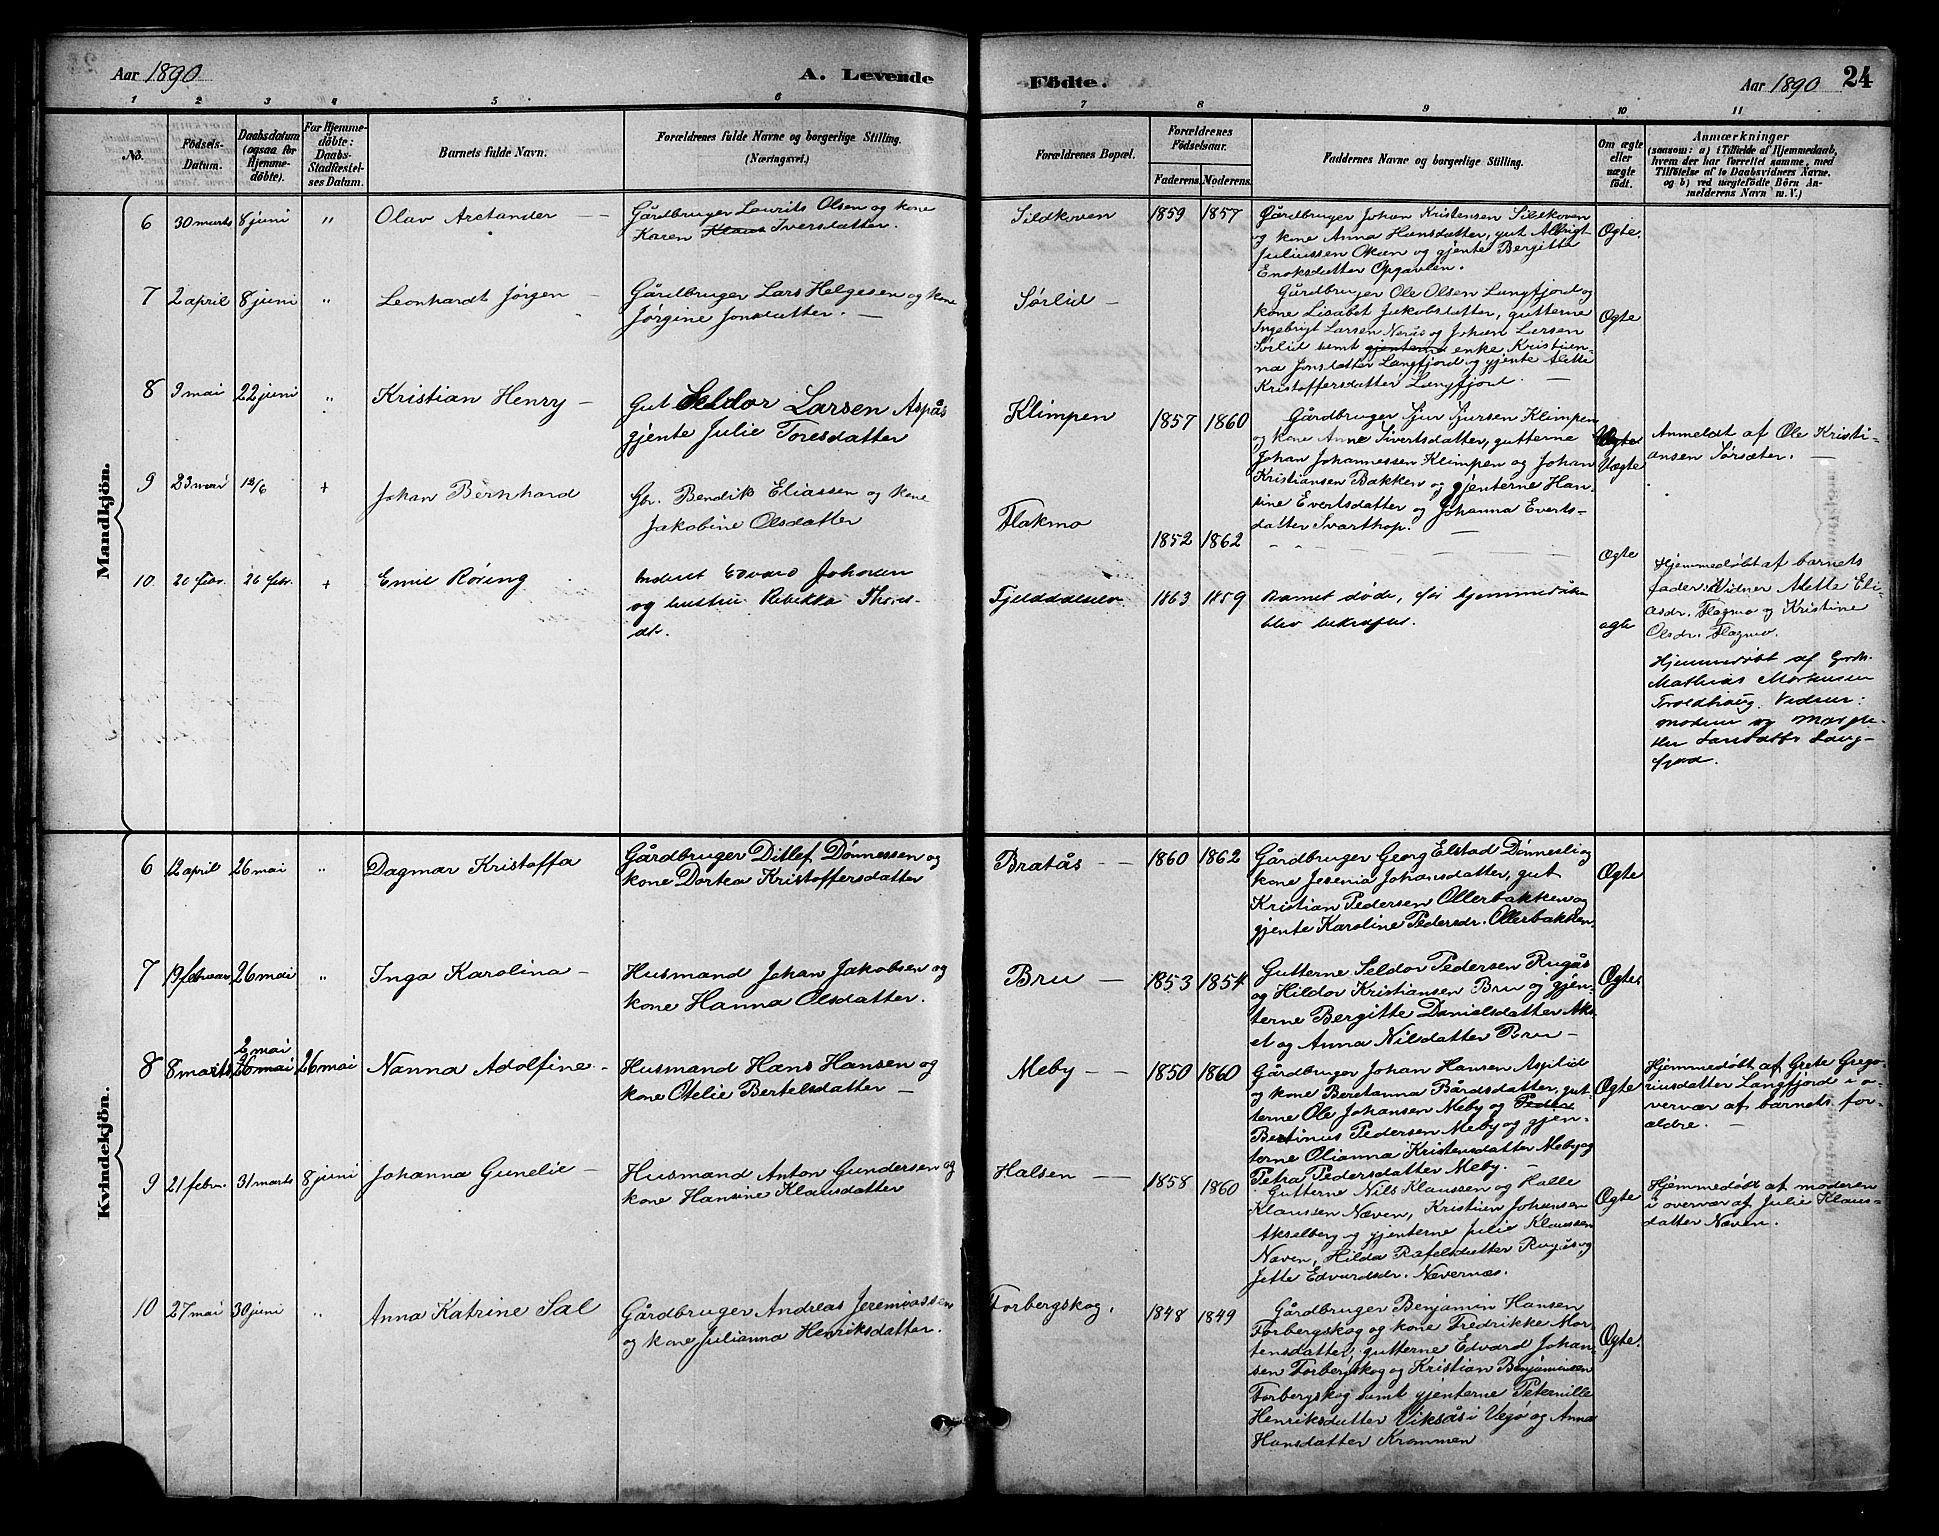 Aar 1890
A. Levende
Födte.
Aar 1890
24
1 2 3 4 5 6 7 8 9 10 11
No.
Födsels-
Datum.
Daabsdatum
(ogsaa for
Hjemme-
döbte).
For Hjemme-
döbte:
Daabs-
Stadfæstel-
ses Datum.
Barnets fulde Navn.
Forældrenes fulde Navne og borgerlige Stilling.
(Næringsvei.)
Forældrenes Bopæl.
Forældrenes
Födselsaar.
Faderens. Moderens.
Faddernes Navne og borgerlige Stilling.
Om ægte
eller
uægte
födt.
Anmærkninger
(saasom: a) i Tilfælde af Hjemmedaab,
hvem der har forrettet samme, med
Tilföielse af to Daabsvidners Navne.
og b) ved uægtefödte Börn An-
melderens Navn m. V.)
Mandkjön.
6 30 marts 8 juni " Olav Arctander — —
Gårdbruger Laurits Olsen og kone
Karen Klaus Iversdatter.
Sildkoven 1859 1857
Gårdbruger Johan Kristensen Sildkoven
og kone Anna Hansdatter, gut Albrigt
Juliussen Okan og gjente Bergitte
Enoksdatter Opgavlen.
Ægte.
7 2 april 8 juni " Leonhardt Jørgen —
Gårdbruger Lars Helgesen og kone
Jørgine Jonsdatter. —
Sørlid —
Gårdbruger Ole Olsen Langfjord og
kone Lisabet Jakobsdatter, gutterne
Ingebrigt Larsen Nerås og Johan Larsen
Sørlid samt gjenterne enke Kristien-
na Jonsdatter Langfjord og gjente Alette
Kristoffersdatter Langfjord. —
Ægte
8 9 mai 22 juni " Kristian Henry —
Gut Seldor Larsen Aspås
gjente Julie Toresdatter
Klimpen 1857 1860
Gårdbruger Sjur Sjursen Klimpen
og kone Anne Sivertsdatter, gutterne
Johan Johannessen Klimpen og Johan
Kristiansen Bakken og gjenterne Han-
sine Evertsdatter og Johanna Everts-
datter Svarthop.
Uægte
Anmeldt af Ole Kristi-
ansen Sørsæter. —
9 23 mai 12/6 + Johan Bernhard
Gbr. Bendik Eliassen og kone
Jakobine Olsdatter
Flakmo
1852 1862
Ægte
Hjemmedøbt af barnets
fader. Vidner Mette Eli-
asdr. Flagmo og Kristine
Olsdr. Flagmo.
10 20 febr. 26 febr. + Emil Røring
Inderst Edvard Johnsen
og hustru Rebekka Thores-
dr.
Fjelddalselv 1863 1859
Barnet døde, før hjemmedåben
blev bekræftet.
ægte
Hjemmedøbt af Grdb.
Mathias Mortensen
Troldhaug. Vidner:
moderen og Margre-
the Larsdatter Lang-
fjord.
Kvindekjön.
6 12 april 26 mai " Dagmar Kristoffa
Gårdbruger Ditlef Dønnessen og
kone Dortea Kristoffersdatter
Bratås — — 1860 1862
Gårdbruger Georg Elstad Dønnesli og
kone Jesenia Johansdatter, gut
Kristian Pedersen Ollerbakken og
gjente Karoline Pedersdr. Ollerbakken.
Ægte
7 19 februar 26 mai " Inga Karolina —
Husmand Johan Jakobsen og
kone Hanna Olsdatter.
Bru — 1853 1854
Gutterne Seldor Pedersen Rugås
og Hildor Kristiansen Bru og gjen-
terne Bergitte Danielsdatter Aks-
et og Anna Nilsdatter Bru —
Ægte
2 mai
8 8 marts 26 mai 26 mai Nanna Adolfine —
Husmand Hans Hansen og
kone Otelie Bertelsdatter —
Meby — — 1850 1860
Gårdbruger Johan Hansen Asplid
og kone Beretanna Bårdsdatter, gut-
terne Ole Johansen Meby og Peder
Bertinus Pedersen Meby og gjen-
terne Olianna Kristensdatter Meby og
Petra Pedersdatter Meby. —
Ægte
Hjemmedøbt af Grete Grego-
riusdatter Langfjord i o-
vervær af barnets for-
ældre. —
9 21 febr. 31 marts 8 juni Johanna Gunelie —
Husmand Anton Gundersen og
kone Hansine Klausdatter
Halsen — 1858 1860
Gutterne Nils Klaussen og Halle
Klaussen Næven, Kristian Johansen
Akselberg og gjenterne Julie Klaussen
Næven, Hilda Rafelsdatter Rugås og
Jette Edvardsdr. Nævernæs.
Ægte
Hjemmedøbt af moderen
i overvær af Julie Klaus-
datter Næven.
10 27 mai 30 juni " Anna Katrine Sal
Gårdbruger Andreas Jeremiassen
og kone Julianna Henriksdatter.
Forbergskog. 1848 1849
Gårdbruger Benjamin Hansen
Forbergskog og kone Fredrikke Mor-
tensdatter, gutterne Edvard Johan-
sen Forbergskog og Kristian Benjaminsen
Forbergskog samt gjenterne Peternille
Henriksdatter Viksås i Vegø og Anna
Hansdatter Krommen
Ægte.